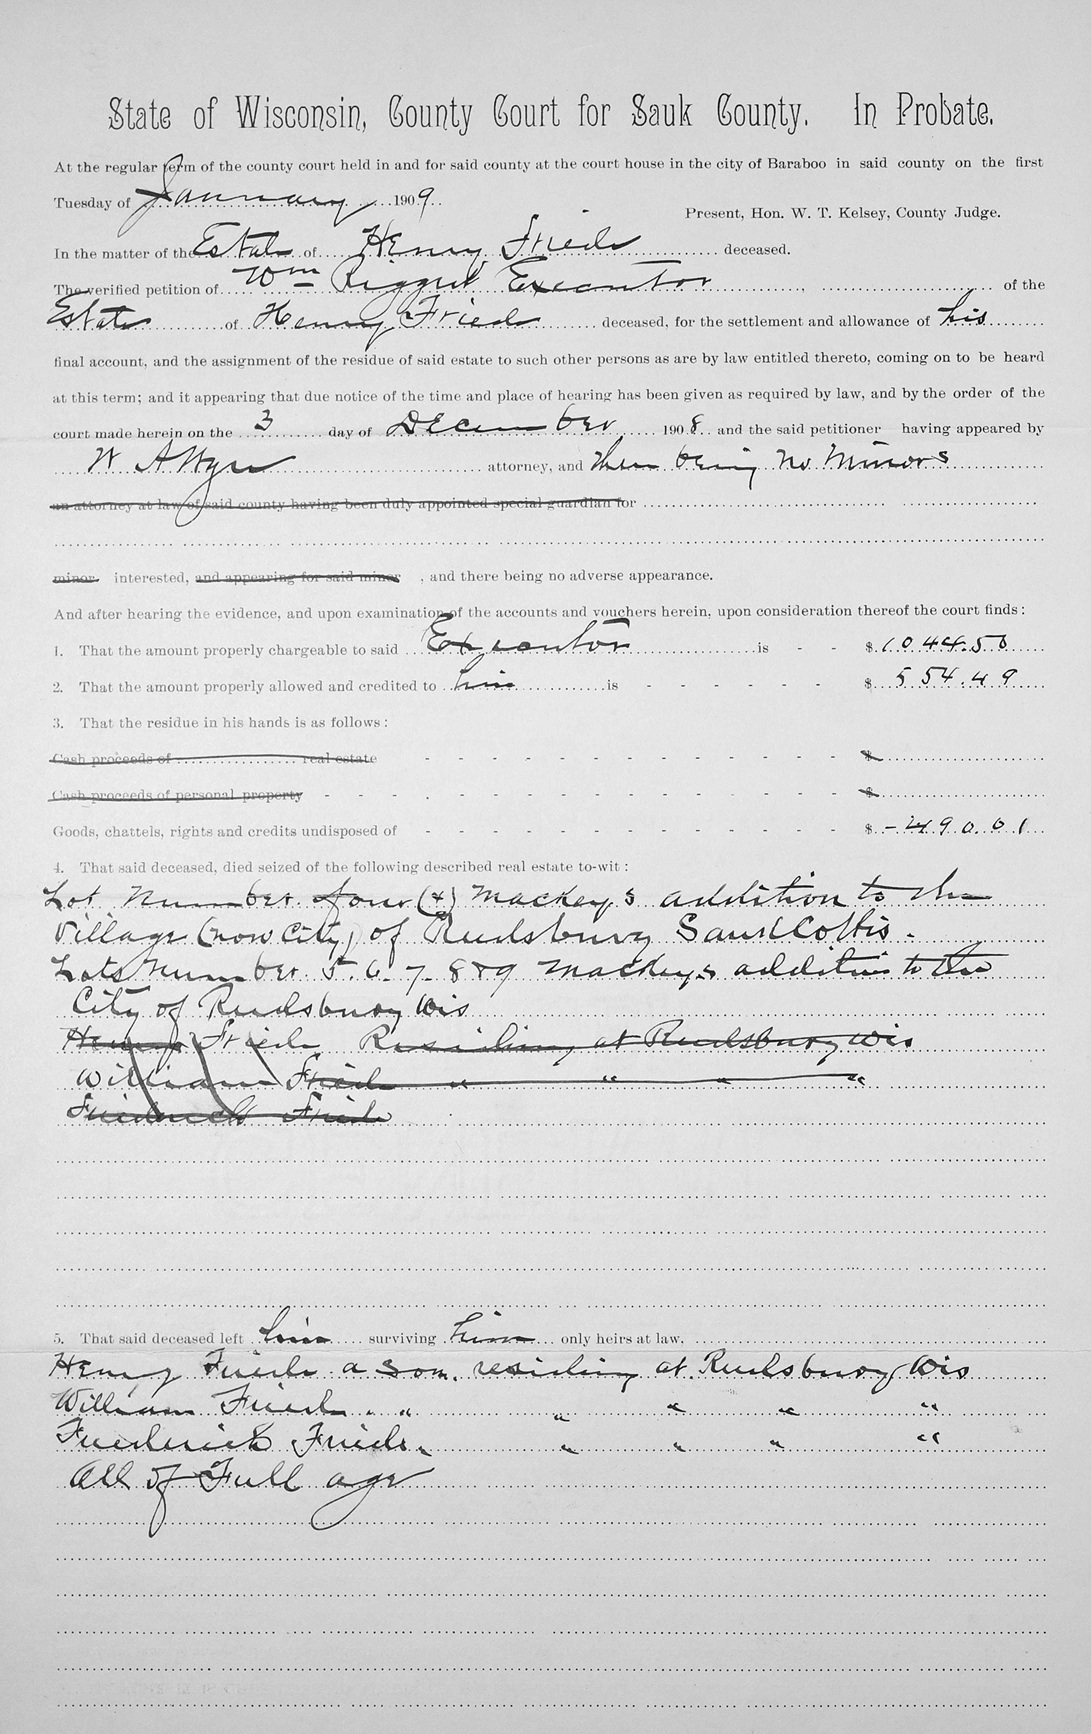 State of Wisconsin, County Court for Sauk County. In Probate.
At the regular term of the county court held in and for said county at the court house in the city of Baraboo in said county on the first
Tuesday of January 1909.
Present, Hon. W. T. Kelsey, County Judge.
In the matter of the Estate of Henry Friede deceased.
The verified petition of Wm Riggert Executor of the
Estate of Henry Friede deceased, for the settlement and allowance of his
final account, and the assignment of the residue of said estate to such other persons as are by law entitled thereto, coming on to be heard
at this term; and it appearing that due notice of the time and place of hearing has been given as required by law, and by the order of the
court made herein on the 3 day of December 1908. and the said petitioner having appeared by
W A Wyse attorney, and there being no Minors
an attorney at law of said county having been duly appointed special guardian for
minor interested, and appearing for said minor , and there being no adverse appearance.
And after hearing the evidence, and upon examination of the accounts and vouchers herein, upon consideration thereof the court finds:
1. That the amount properly chargeable to said Executor is - - $ 1044.50
2. That the amount properly allowed and credited to him is - - - - - - $ 554.49
3. That the residue in his hands is as follows:
Cash proceeds of real estate - - - - - - - - - - - - - $
Cash proceeds of personal property - - - - - - - - - - - - - - - $
Goods, chattels, rights and credits undisposed of - - - - - - - - - - - - - $ -490.01
4. That said deceased, died seized of the following described real estate to-wit:
Lot Number four (4) Mackey's addition to the
Village (now City) of Reedsburg Sauk Co Wis.
Lots Number 5. 6. 7. 8 & 9 Mackey's addition to the
City of Reedsburg Wis
Henry Friede Residing at Reedsburg Wis
William Friede " " " "
Friederick Friede
5. That said deceased left him surviving him only heirs at law.
Henry Friede a son. residing at Reedsburg Wis
William Friede " " " " " "
Friederick Friede " " " " "
All of Full age